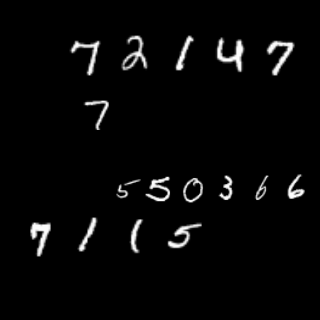 72147
7
550366
7115